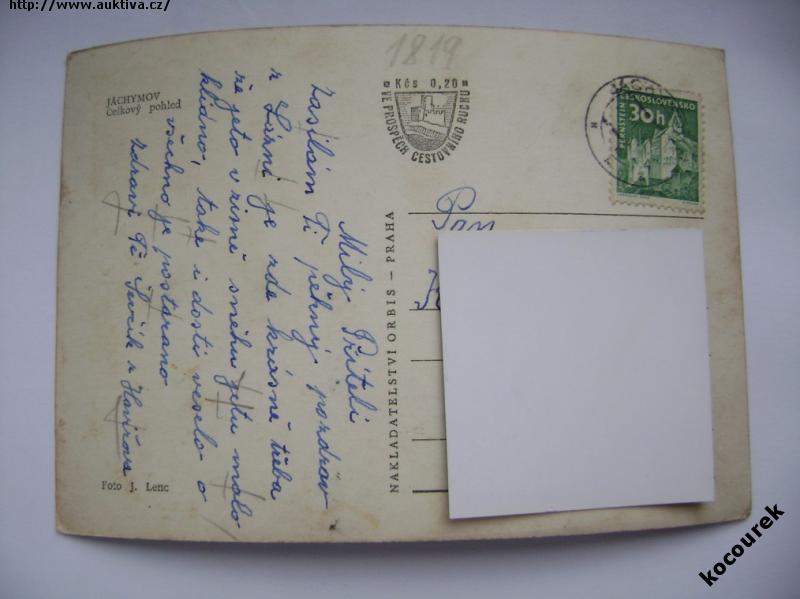 http://www.auktiva.cz/
1819
Kčs 0,20
VE PROSPĚCH CESTOVNÍHO RUCHU
ČESKOSLOVENSKO
30h
PERNŠTEJN
JÁCHYMOV
Celkový pohled
Milý Příteli
Zasílám Ti pěkný pozdrav
z Lázní je zde krásně třeba
že jeto v zimě sněhu jetu málo
klidno, také i dosti veselo o
všechno je postaráno
zdraví Tě Ševčík z Havířova
Foto J. Lenc
NAKLADATELSTVÍ ORBIS — PRAHA
Pan
kocourek